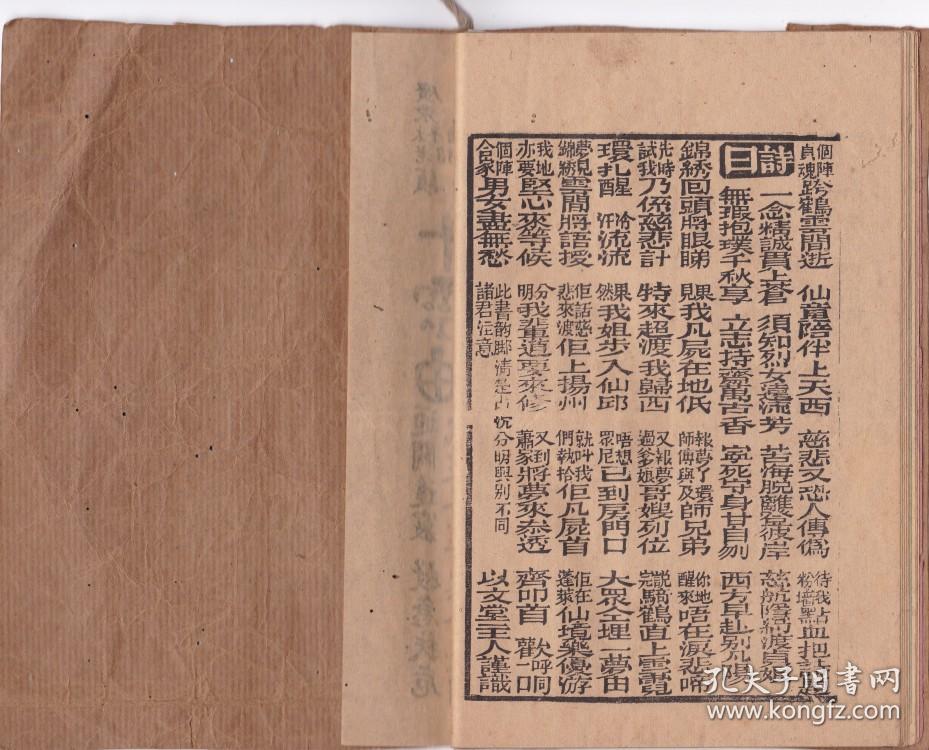 個陣貞魂跨鶴雲間逝 仙童陪伴上天西 慈悲又恐人傳偽 待我粉墻血把詩
詩曰
一念精誠貫上蒼 須知烈女邁流芳 苦海脫離登彼岸 慈航隱約渡貞娘
無瑕抱璞千秋享 立志持齋萬古香 寧死守身甘自刎 西方早赴別凡陽
錦綉回頭將眼睇 果見我凡屍在地低 報夢了環師傅與及師兄弟 你地醒來唔在淚悲啼
先時試我乃係慈悲計 特來超渡我歸西 又報夢過爹娘哥嫂列位 說完騎鶴直上雲霓
環扎醒 汗冷流流 果然我姐步入仙邱 唔想眾尼已到房門口 大眾仝埋一夢由
夢見錦綉雲間將語授 佢話慈悲來渡佢上揚州 就叫我們執拾佢凡屍首 佢在蓬萊仙境樂優游
我地亦要堅心來等候 分明我輩道要來修 又到蕭家將夢來泰透 齊叩首 歡呼同一口
個陣合家男女盡無愁 此書韵脚清楚 分明與別不同 諸君注意 以文堂主人謹識
孔夫子旧书网
www.kongfz.com